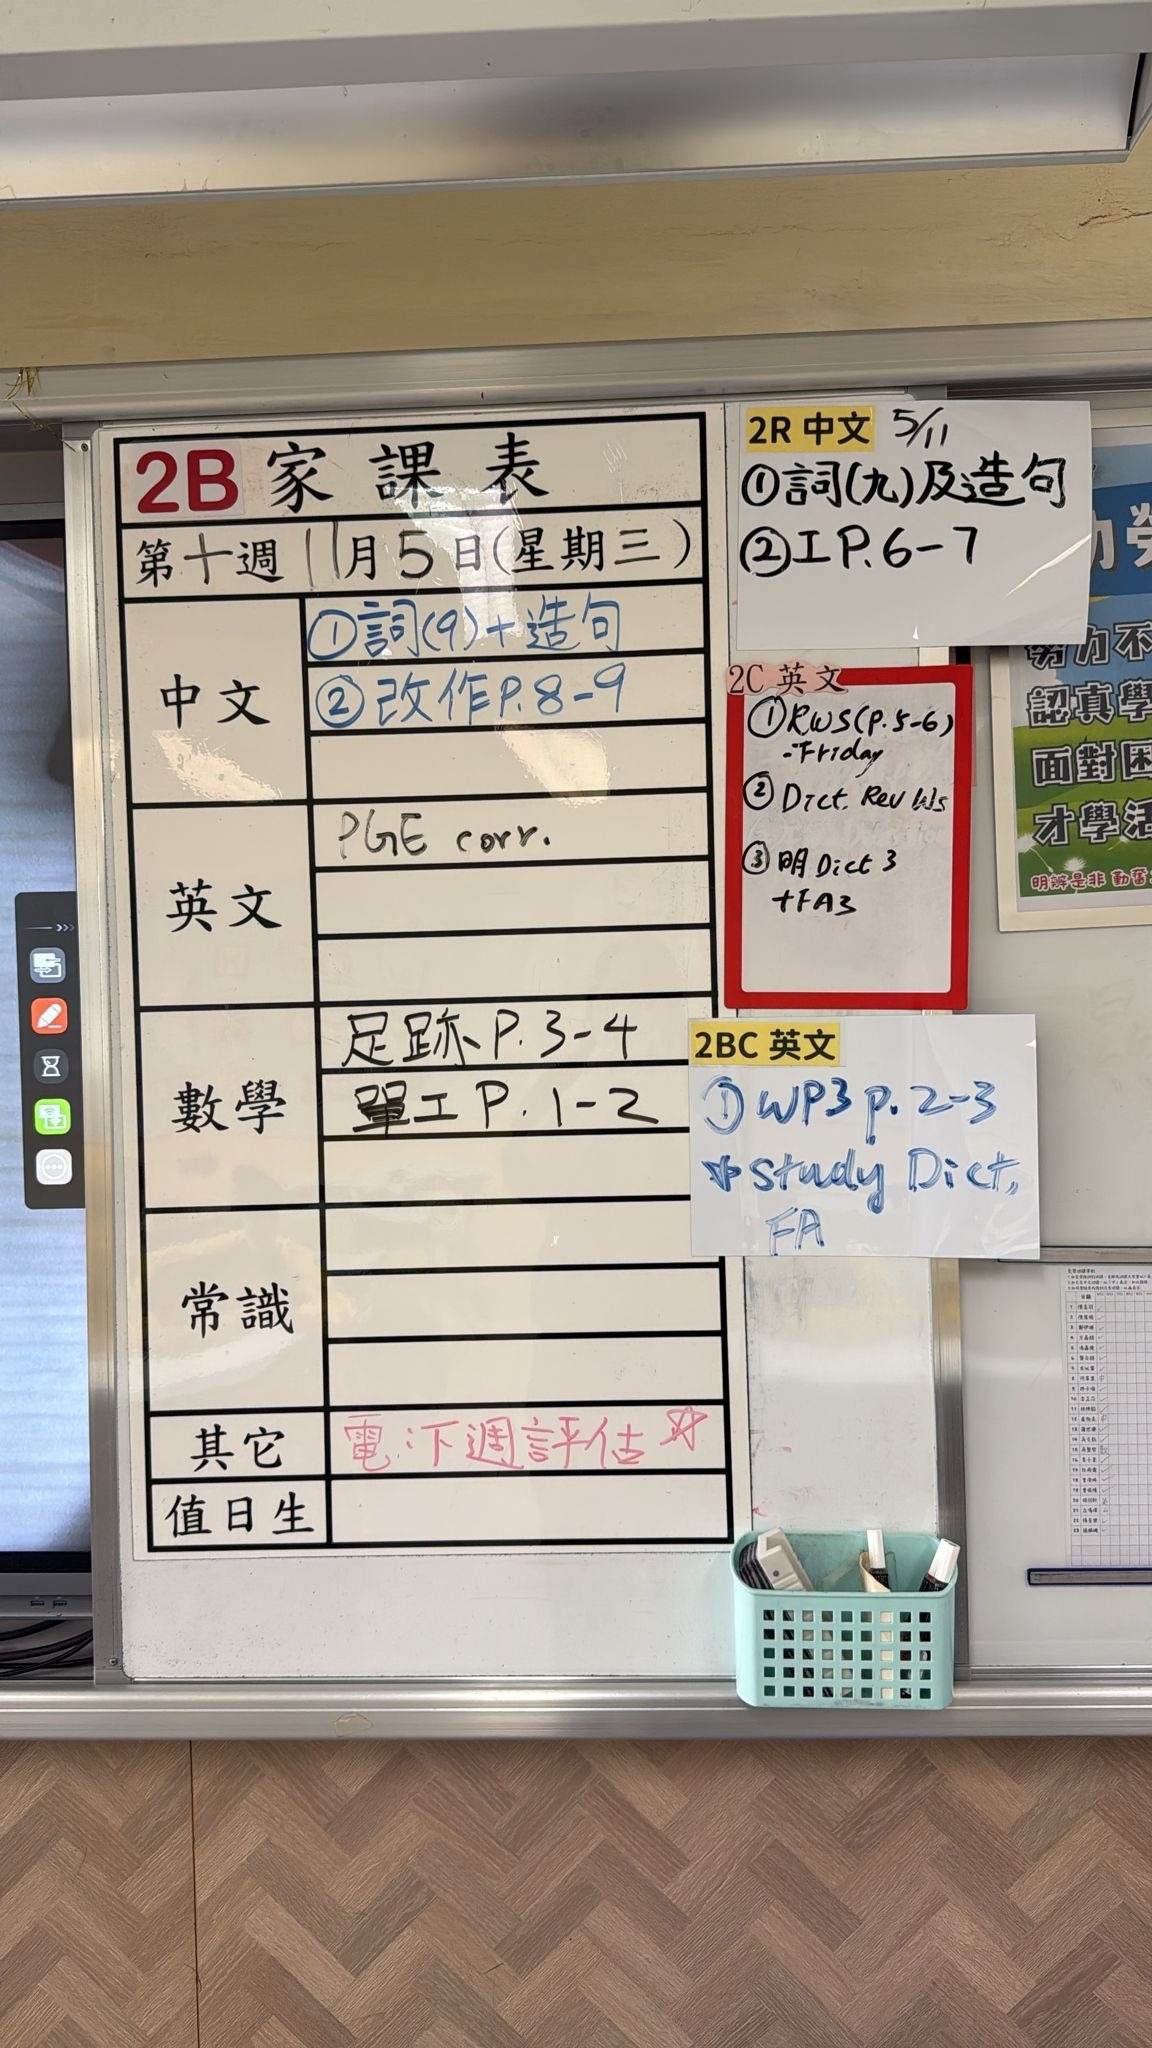 2B 家課表
第十週 11月5日(星期三)
中文
①詞(9)+造句
②改作P.8-9
英文
PGE corr.
數學
足跡P.3-4
單工P.1-2
常識
其它
電:下週評估☆
值日生
2R 中文 5/11
①詞(九)及造句
②工P.6-7
2C 英文
①RWS(P.5-6)
-Friday
②Dict. Rev Ws
③明Dict 3
+FA3
2BC 英文
①WP3 p.2-3
☆study Dict,
FA
努力不
認真學
面對困
才學活
明辨是非 勤奮